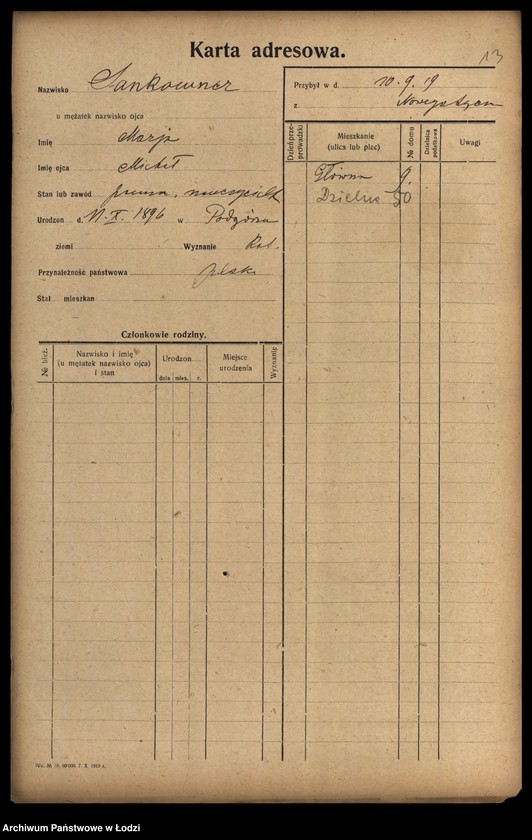 Karta adresowa.
13
Nazwisko Sankowner
u mężatek nazwisko ojca
Imię Marja
Imię ojca Michał
Stan lub zawód panna, nauczycielk
Urodzon d. 11. X. 1896 w Podgórza
ziemi Wyznanie Kat.
Przynależność państwowa Polsk
Stał mieszkan
Przybył w d. 10. 9. 19
z
Dzień przeprowadzki
Mieszkanie (ulica lub plac)
№ domu
Dzielnica podatkowa
Uwagi
Główna 9.
Dzielna 50
Członkowie rodziny.
№ bież.
Nazwisko i imię
(u mężatek nazwisko ojca)
i stan
Urodzon
dnia mies. r.
Miejsce
urodzenia
Wyznanie
7. X. 1919 r.
Archiwum Państwowe w Łodzi